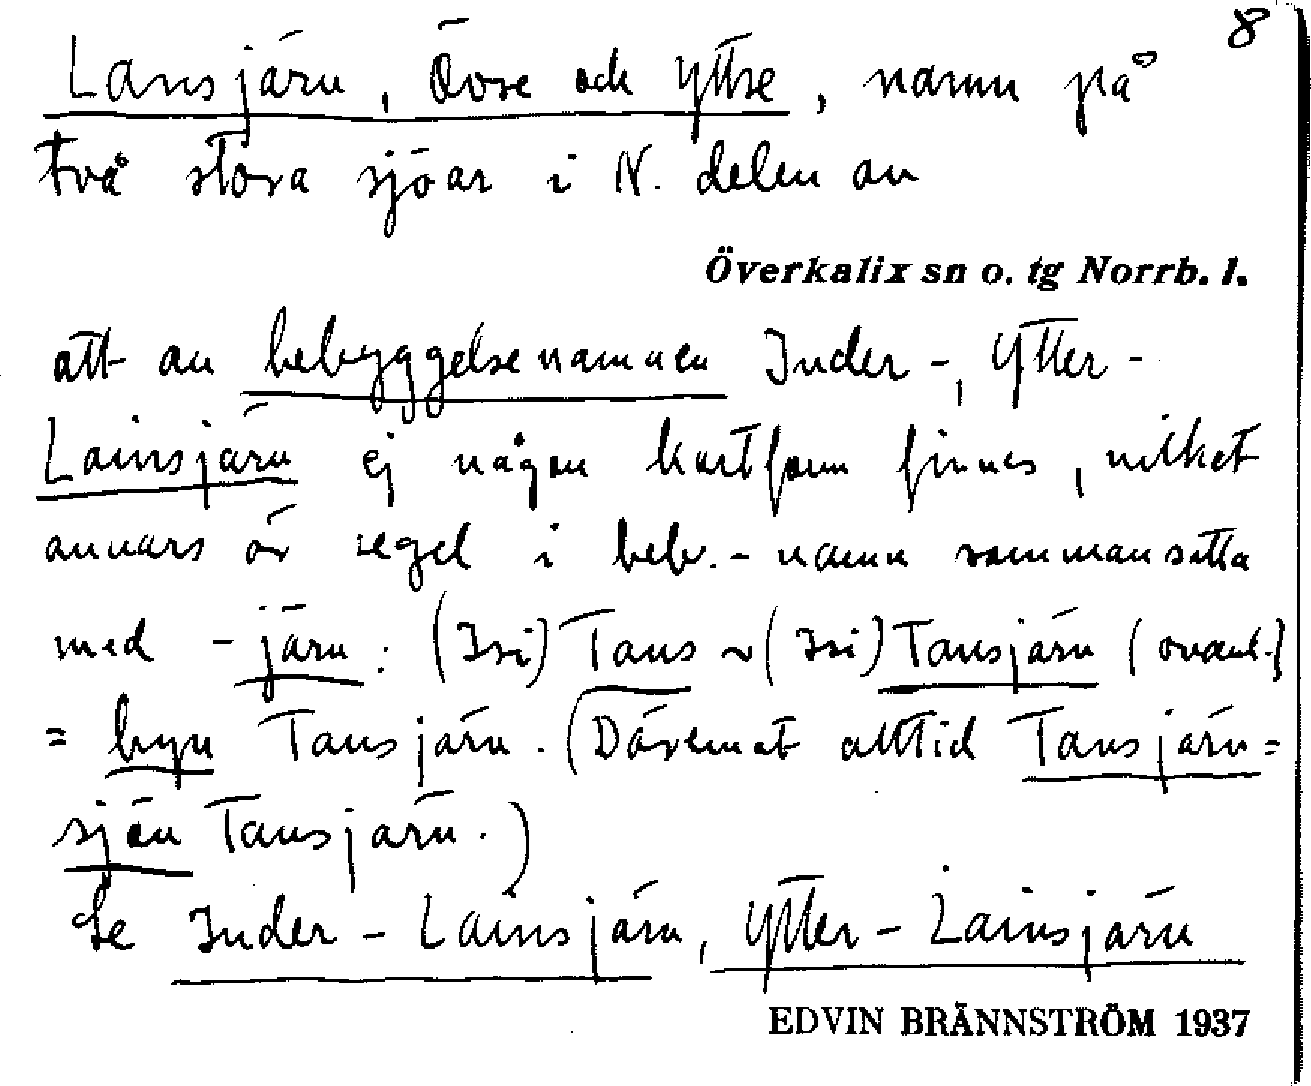 8
Lansjärv, Övre och Yttre, namn på
två stora sjöar i N. delen av
Överkalix sn o. tg Norrb. l.
att av bebyggelsenamnen Inder-, Ytter-
Lainsjärv ej någon kortform finnes, vilket
annars är regel i beb.-namn sammansatta
med -järv: (Isi) Tans ~ (Isi) Tansjärv (ovanl.)
= byn Tansjärv. (Däremot alltid Tansjärv=
sjön Tansjärv.)
Se Inder-Lainsjärv, Ytter-Lainsjärv
EDVIN BRÄNNSTRÖM 1937